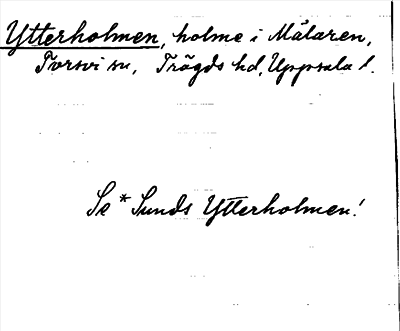 Ytterholmen, holme i Mälaren,
Torsvi sn, Trögds hd, Uppsala l.
Se *Sunds Ytterholmen!